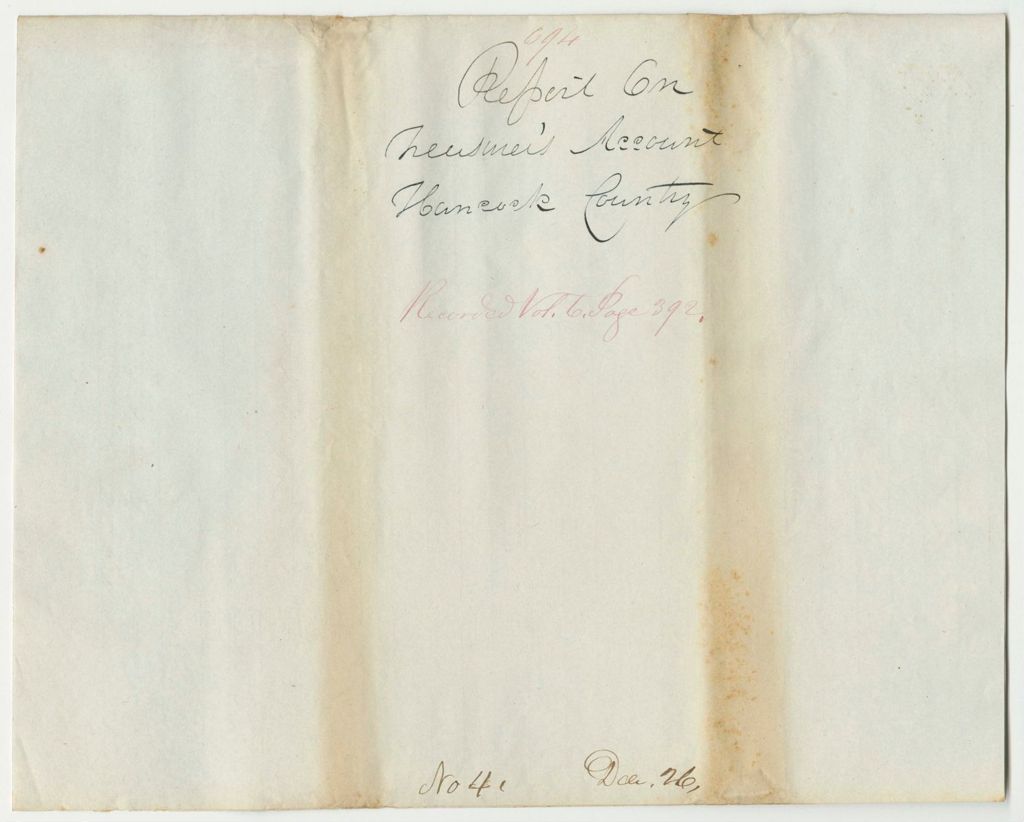 694
Report On
Treasurer's Account
Hancock County
Recorded Vol. 6. Page 392.
No 4.
Dec. 26,